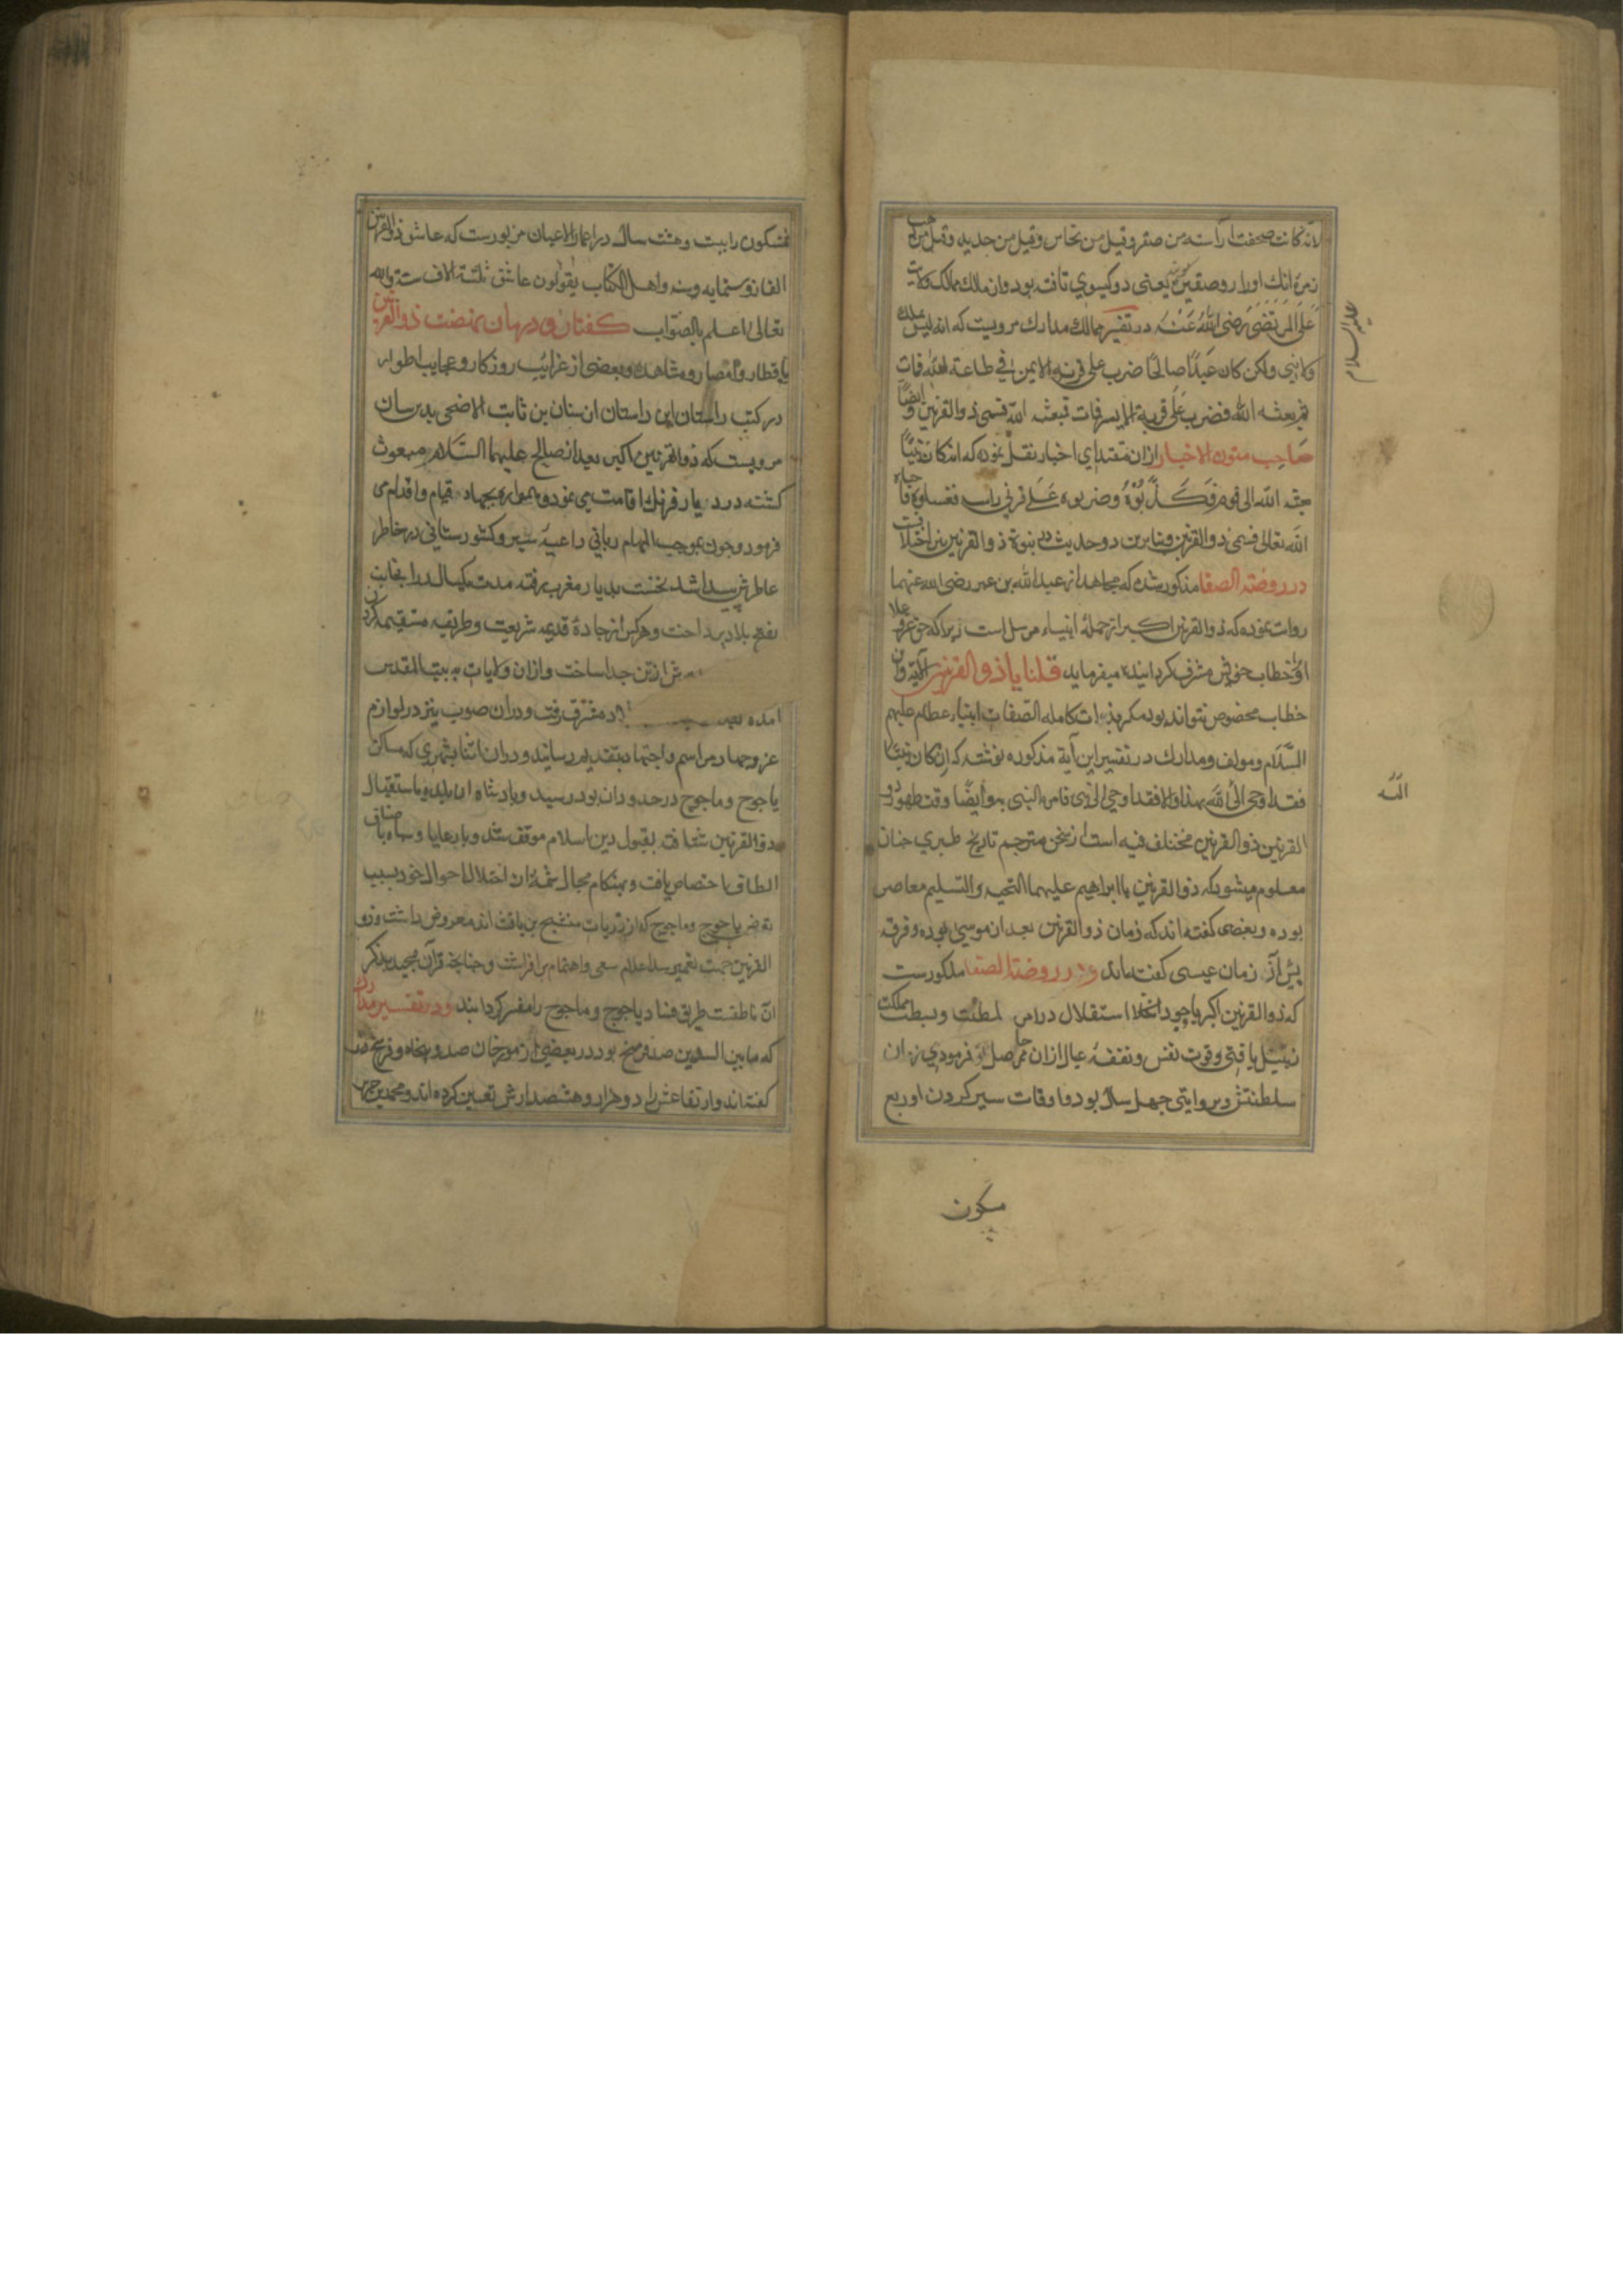 لانه کانت صحفتا رأسه من صفر و قیل من نحاس و قیل من حدید و قیل من
زمره انک او را دو صفیرتین یعنی دو کیسوی تافته بود وان ملک ممالک ولایت
علی المرتضی رضی الله عنه در تفسیر ممالک مدارک مرویست که انه لیس بملک
ولا نبی ولکن کان عبدًا صالحًا ضرب علی قرنه الایمن فی طاعة الله فمات
ثم بعثه الله فضرب علی قرنه الایسر فمات فبعثه الله فسمی ذو القرنین وایضًا
صاحب متون الاخبار ازان مقتدای اخبار نقل نموده که انه کان نبیًا
بعثه الله الی قومه فکذبوه وضربوه علی قرنی راسه فقتلوه فاحیاه
الله تعالی فسمی ذو القرنین وبنا برین دو حدیث در نبوة ذو القرنین اختلافست
در روضة الصفا مذکور شده که مجاهد از عبد الله بن عمر رضی الله عنهما
روایت نموده که ذو القرنین اکبر از جمله انبیاء مرسل است زیرا که حق عز و علا
او را بخطاب خویش مشرف کردانیده میفرماید قلنا یا ذو القرنین الآیة وآن
خطاب مخصوص نتواند بود مکر بذات کامله الصفات انبیاء عظام علیهم
السلام ومولف مدارک در تفسیر این آیة مذکوره نوشته که ان کان نبیًا
فقد اوحی الی الله بهذا والا فقد اوحی الی نبی فامره النبی به وایضًا وقت ظهور ذو
القرنین ذو القرنین مختلف فیه است از سخن مترجم تاریخ طبری چنان
معلوم میشود که ذو القرنین با ابراهیم علیهما التحیه والتسلیم معاصر
بوده وبعضی کفته اند که زمان ذو القرنین بعد از موسی بوده وفرقه
پیش از زمان عیسی کفته اند و در روضة الصفا مذکورست
که ذو القرنین اکبر با وجود استقلال در امر سلطنت وبسطت مملکت
زنبیل بافتی وقوت نفس ونفقه عیال ازان ممر حاصل فرمودی زمان
سلطنتش بروایتی چهل سال بود واوقات سیر کردن او ربع
مسکون
علیه السلام
مسکون را بیست وهشت سال در اعمار الاعیان مزبورست که عاش ذو القرنین
الفا وستمایه سنه واهل الکتاب یقولون عاش ثلثة الاف سنة والله
تعالی اعلم بالصواب کفتار در بیان نهضت ذو القرنین
باقطار وامصار ومشاهده بعضی از غرایب روزکار وعجایب اطوار
در کتب راستان این داستان از سنان بن ثابت الاضحی بدرسان
مرویست که ذو القرنین اکبر بعد از صالح علیهما السلام مبعوث
کشته در دیار فرنک اقامت می نمود وهمواره بجهاد قیام واقدام می
فرمود وچون بموجب الهام ربانی داعیه سیر وکشورستانی در خاطر
عاطرش پیدا شد نخست بدیار مغرب رفته مدت یکسال در آن جانب
بفتح بلاد پرداخت وهرکس از جاده قدیمه شریعت وطریقه مستقیمه کردن
ش از تن جدا ساخت وازان ولایات به بیت المقدس
آمده بعد ... مشرق رفت ودران صوب نیز در لوازم
غزو وجهاد مراسم واجتهاد بتقدیم رسانید ودران اثنا بشهری که مساکن
یاجوج وماجوج در حدود آن بود رسید وپادشاه آن بلده باستقبال
ذو القرنین شتافته بقبول دین اسلام موفق شد وبا رعایا وسپاه باصناف
الطاف اختصاص یافت وبهنکام مجال شمه از اختلال احوال خود بسبب
تعرض یاجوج وماجوج که از ذریات منشج بن یافث اند معروض داشت وذو
القرنین جهت تعمیر سد اعلام سعی واهتمام برافراشت وچنانچه قرآن مجید بذکر
آن ناطقست طریق فساد یاجوج وماجوج را مسدود کردانید ودر تفسیر مدارک
که ما بین السدین صد فرسخ بود در بعضی از مورخان صد وپنجاه فرسخ
کفته اند وارتفاعش را دو هزار وهشتصد ارش تعیین کرده اند ومحمد بن جریر